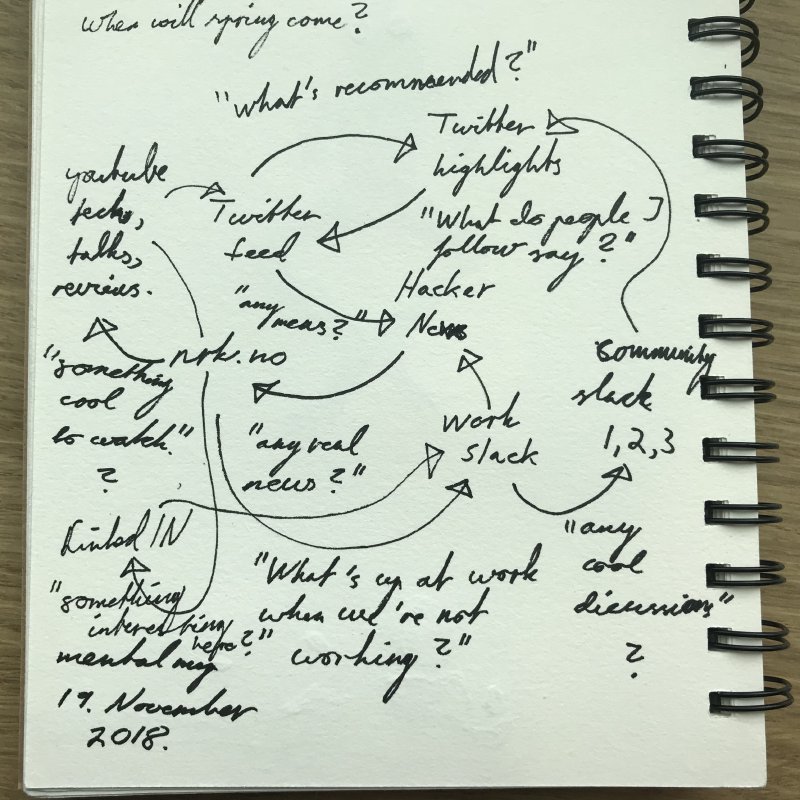 when will spring come?
"What's recommended?"
Twitter
highlights
youtube
techs,
talks,
reviews.
Twitter
feed
"What do people I
follow say?"
"any
news?"
Hacker
News
nrk.no
"something
cool
to watch."
?
"any real
news?"
work
slack
community
slack
1,2,3
LinkedIN
"something
interesting
here?"
"What's up at work
when we're not
working?"
"any
cool
discussions"
?
mental map
19. November
2018.